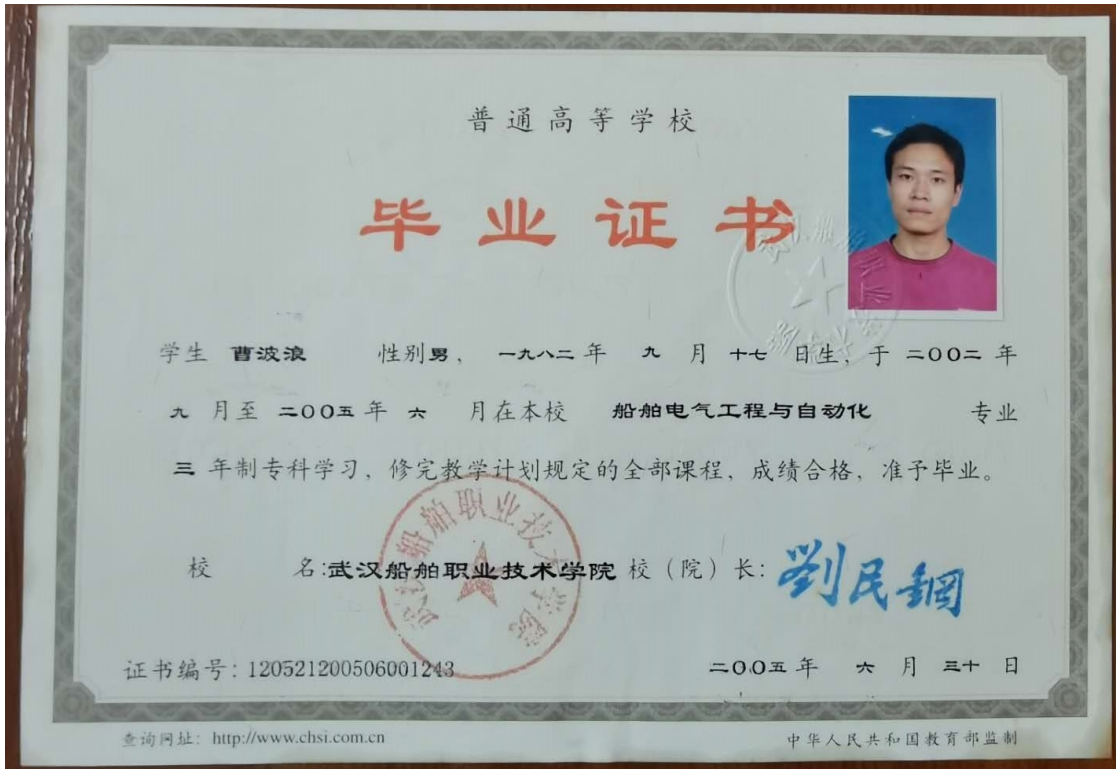 普通高等学校
毕业证书
学生 曹波浪 性别男, 一九八二年 九 月 十七 日生, 于 二〇〇二 年
九 月至 二〇〇五年 六 月在本校 船舶电气工程与自动化 专业
三 年制专科学习, 修完教学计划规定的全部课程, 成绩合格, 准予毕业。
校 名:武汉船舶职业技术学院 校(院)长: 劉民鋼
武汉船舶职业技术学院
证书编号: 120521200506001243
二〇〇五年 六 月 三十 日
查询网址: http://www.chsi.com.cn
中华人民共和国教育部监制